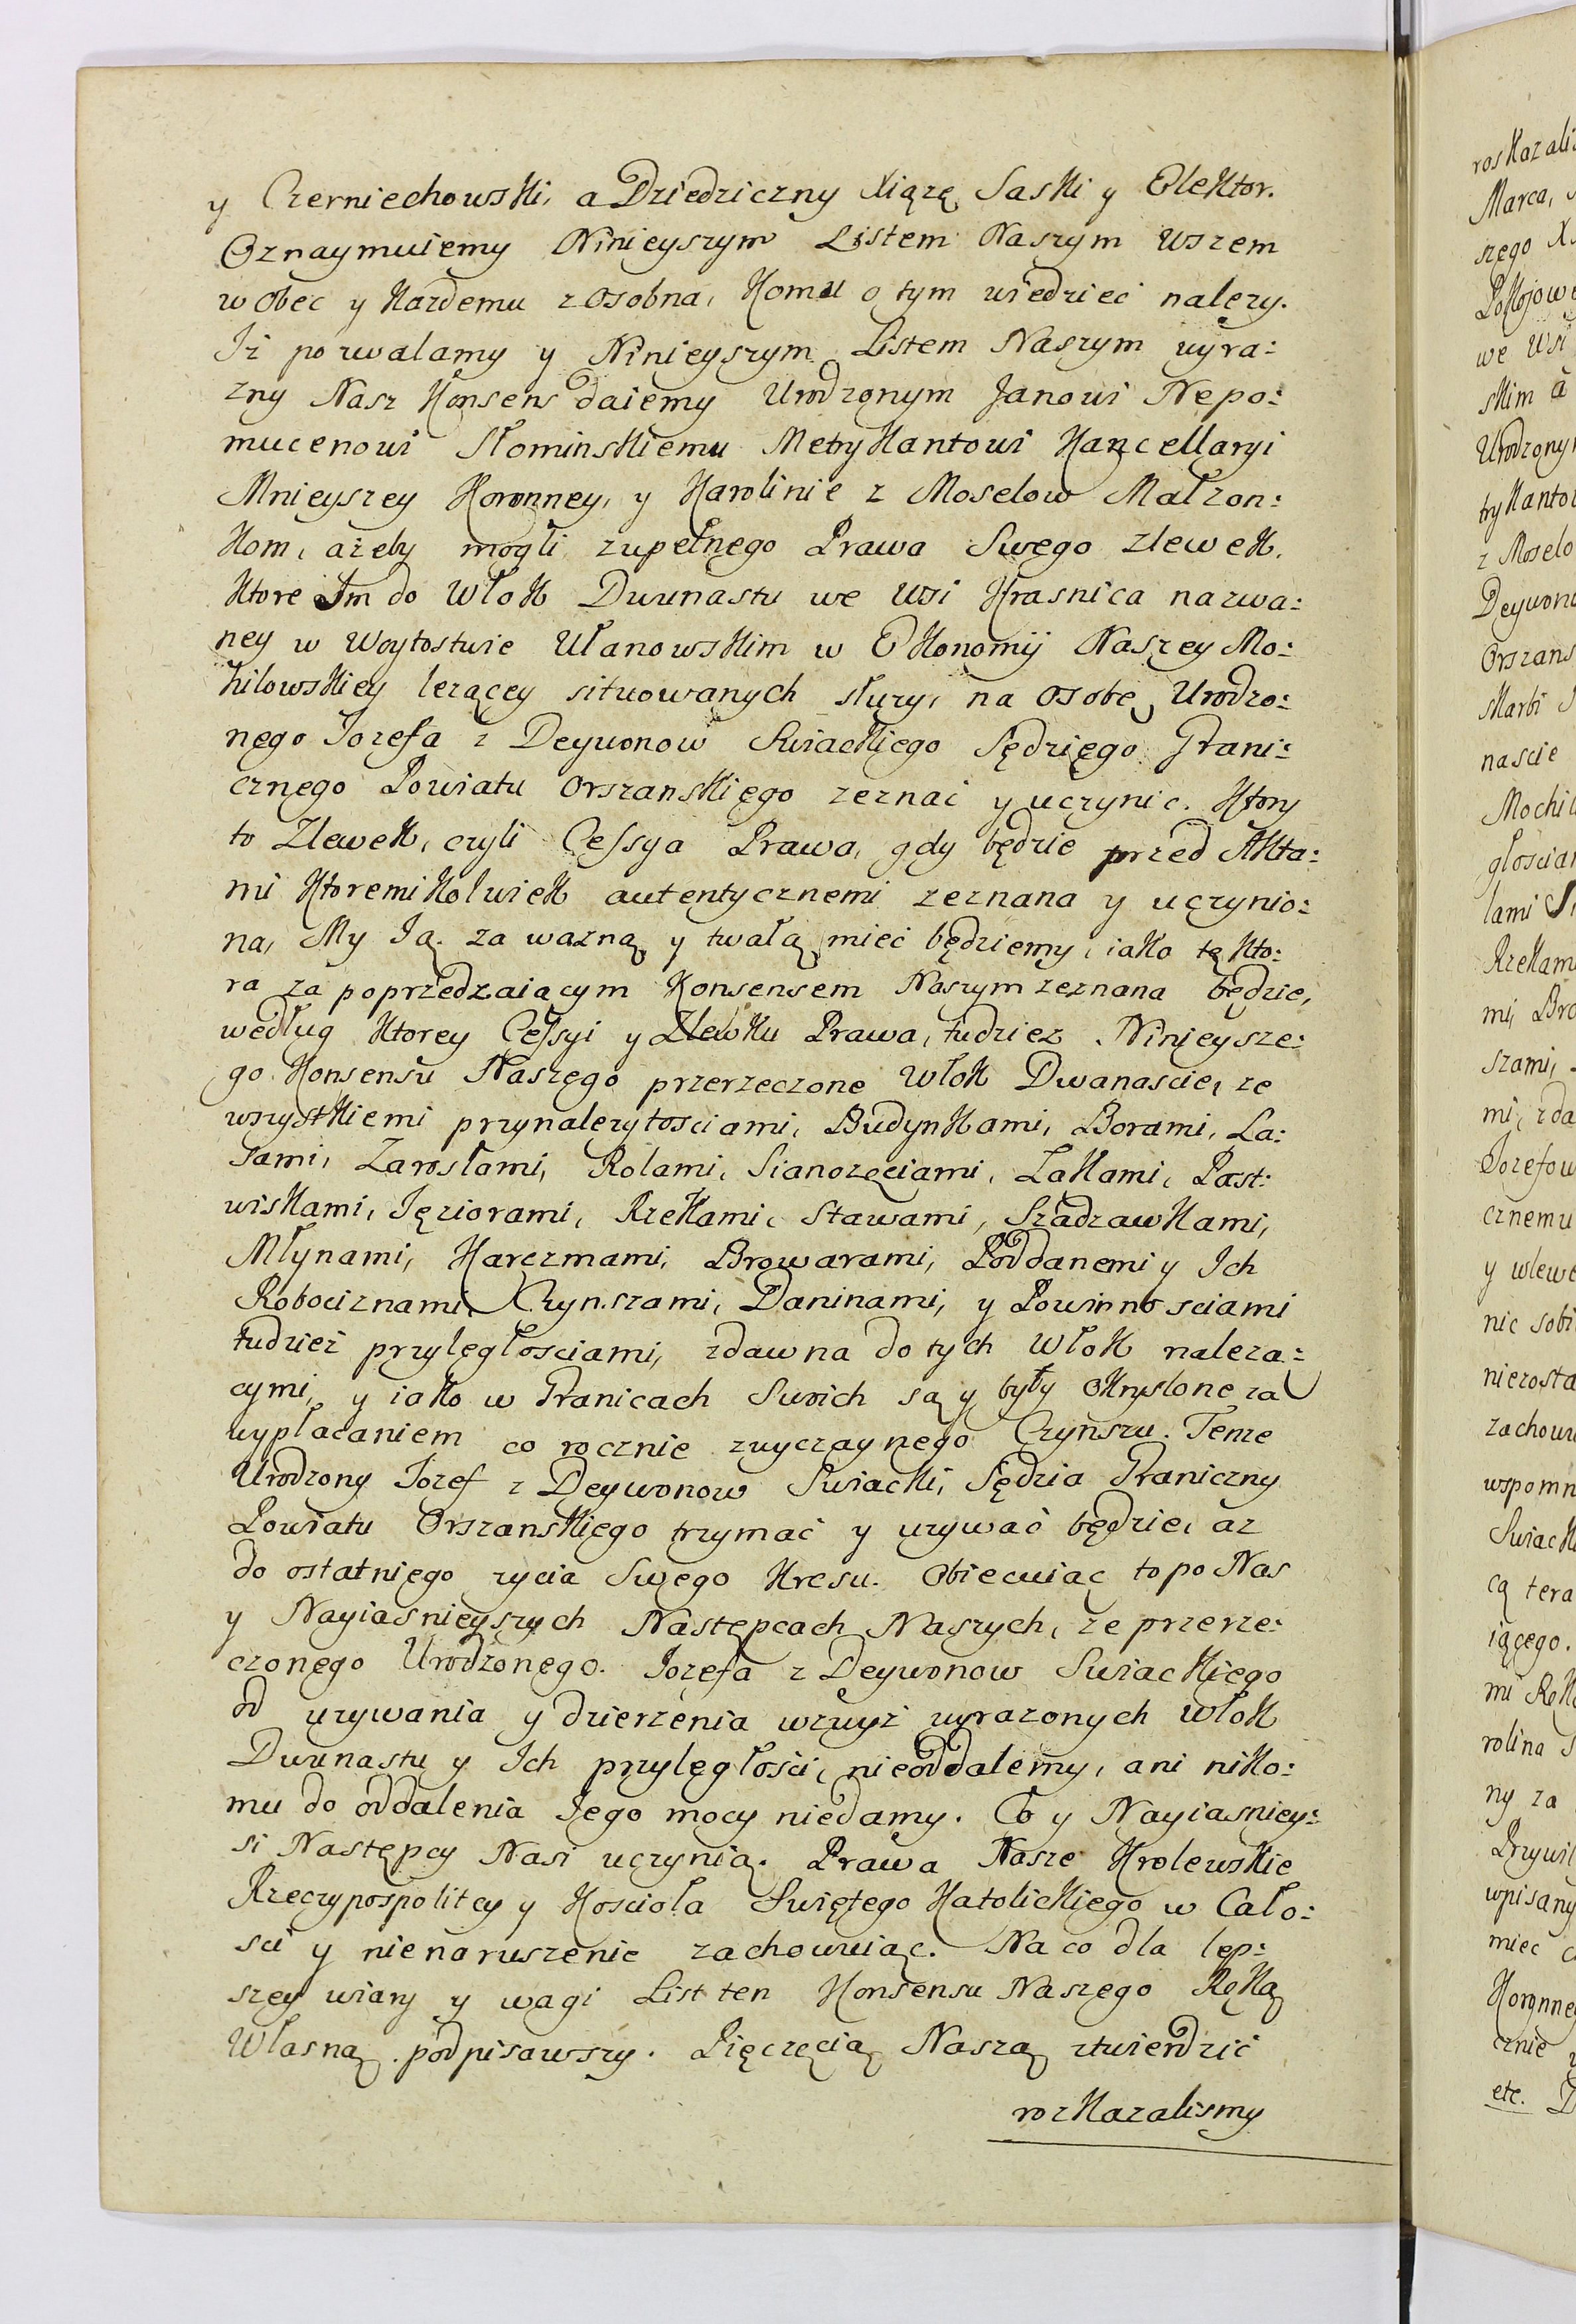 y Czerniechowski, a Dziedziczny Xiąze Saski y Elektor.
Oznaymuiemy Ninieyszym Listem Naszym wszem
w obec y kazdemu z osobna, komu o tym wiedzieć nalezy.
Iż pozwalamy y Ninieyszym Listem Naszym wyra:
zny Nasz Konsens daiemy Urodzonym Janowi Nepo:
mucenowi Słominskiemu Metrykantowi Kancellaryi
Mnieyszey Koronney, y Karolinie z Moselow Małzon:
kom, ażeby mogli zupełnego Prawa Swego zlewek,
ktore Im do Włok Dwunastu we Wsi Krasnica nazwa:
ney w Woytostwie Ułanowskim w Ekonomij Naszey Mo:
hilowskiey lezącey situowanych słuzy, na osobę Urodzo:
nego Iozefa z Deywonow Swiackiego Sędziego Grani:
cznego Powiatu Orszanskiego zeznać y uczynic. Ktory
to Zlewek, czyli Cessya Prawa, gdy będzie przed Akta:
mi ktoremikolwiek autentycznemi zeznana y uczynio:
na, My Ią za wazną y twałą mieć będziemy, iako tę kto:
ra za poprzedzaiącym Konsensem Naszym zeznana będzie,
według ktorey Cessyi y Zlewku Prawa, tudziez Ninieysze:
go Konsensu Naszego przerzeczone Włok Dwanascie, ze
wszystkiemi przynalezytosciami, Budynkami, Borami, La:
sami, Zarosłami, Rolami, Sianozęciami, Łakami, Past:
wiskami, Ięziorami, Rzekami, Stawami, Szadzawkami,
Młynami, Karczmami, Browarami, Poddanemi y Ich
Robociznami, Czynszami, Daninami, y Powinnosciami
tudzież przyległosciami, zdawna do tych Włok naleza:
cymi, y iako w Granicach Swoich są y były okryslone za
wypłacaniem co rocznie zwyczaynego Czynszu. Tenze
Urodzony Iozef z Deywonow Swiacki, Sędzia Graniczny
Powiatu Orszanskiego trzymać y uzywać będzie, az
do ostatniego zycia Swego Kresu. Obiecuiąc to po Nas
y Nayiasnieyszych Następcach Naszych, ze przerze:
czonego Urodzonego Iozefa z Deywonow Swiackiego
od uzywania y dzierzenia wzwyż wyrazonych Włok
Dwunastu y Ich przyległości, nieoddalemy, ani niko:
mu do oddalenia Iego mocy niedamy. Co y Nayiasniey:
si Następcy Nasi uczynią. Prawa Nasze Krolewskie
Rzeczypospolitey y Kosciola Swiętego Katolickiego w Cało:
sci y nienaruszenie zachowuiąc. Na co dla lep:
szey wiary y wagi List ten Konsensu Naszego Ręką
Własną podpisawszy. Pięczęcią Naszą ztwierdzić
rozkazalismy
roskazali
Marca,
szego
Pokojow
we Wsi
skim a
Urodzony
trykanto
z Moselo
Deywono
Orszans
skarbi
nascie
Mochil
głoscia
lami
Rzekam
mi, Bro
szami,
mi, zda
Jozefow
cznemu
y wlewe
nic sobi
niezosta
zachowu
wspomn
Swiack
cą tera
iącego.
mi Ręk
rolina S
ny za
Przywil
wpisany
miec
Koronne
cznie
etc.